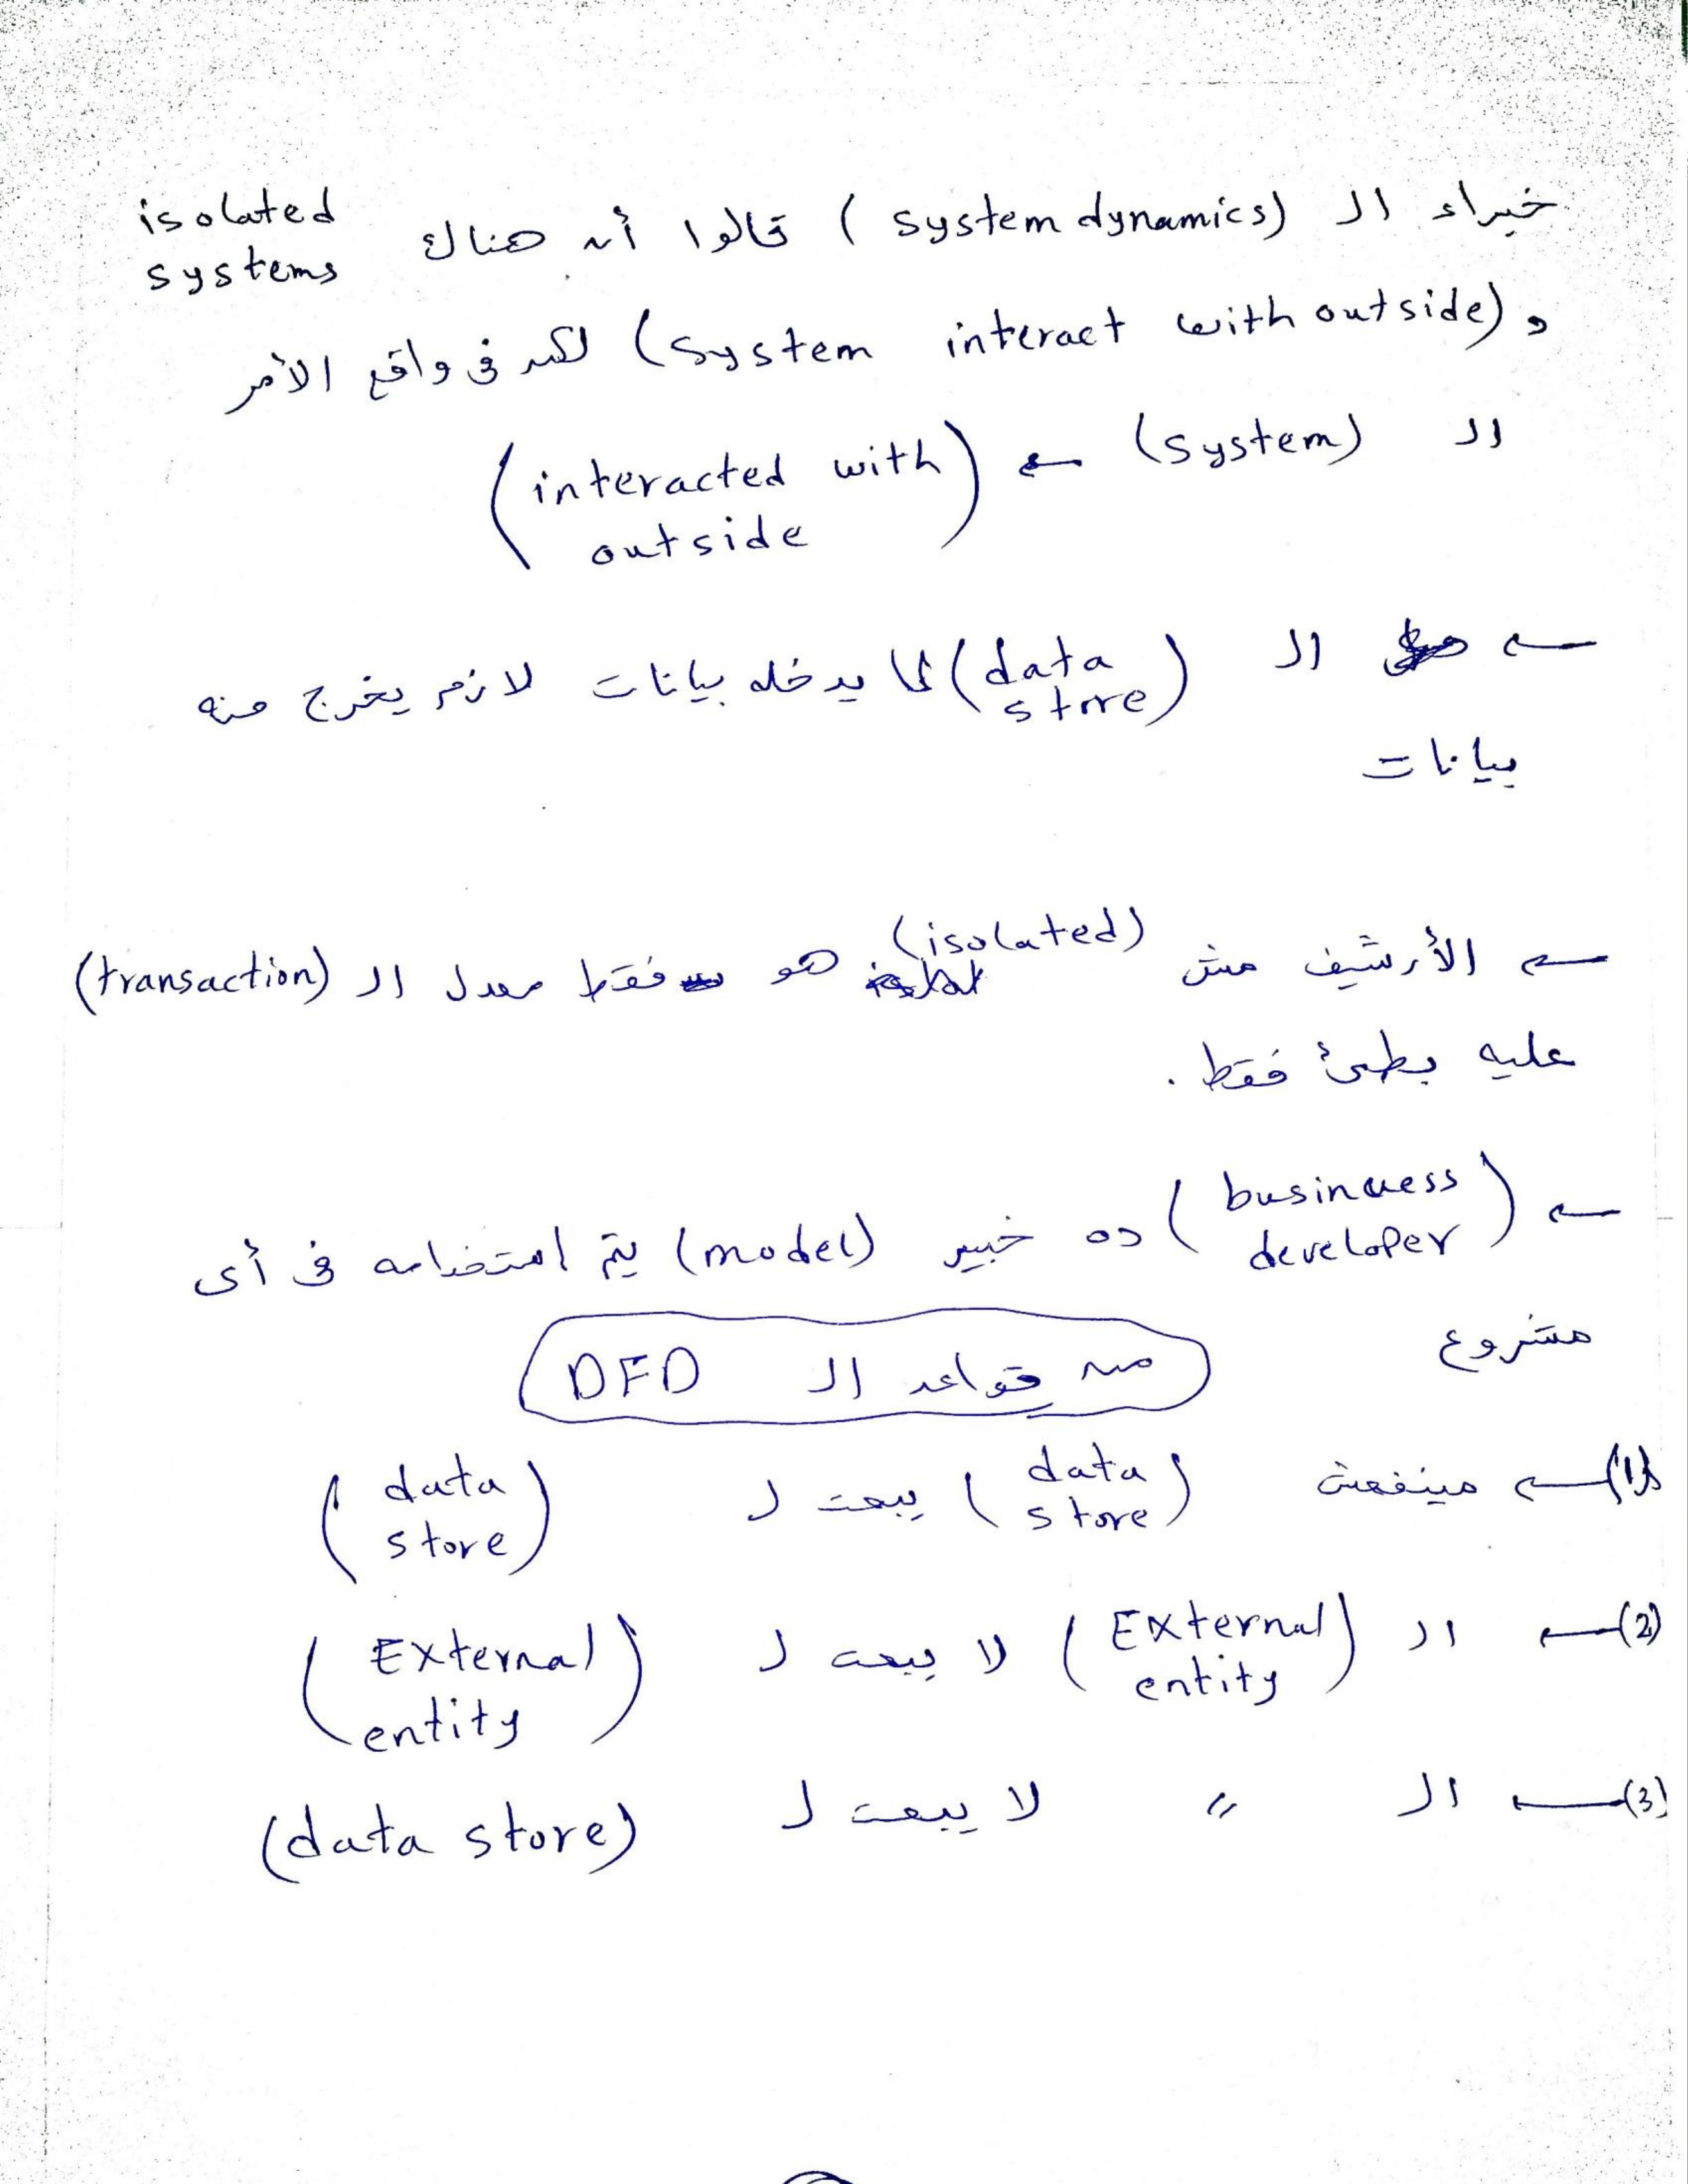 خبراء الـ (system dynamics) قالوا أن هناك isolated systems
و (system interact with outside) لكن فى واقع الأمر
الـ (system) ← (interacted with outside)
← الـ (data store) لما يدخله بيانات لازم يخرج منه
بيانات
← الأرشيف مش (isolated) هو فقط معدل الـ (transaction)
عليه بطئ فقط .
← (businuess developer) ده خبير (model) يتم استخدامه فى أى
مشروع
من قواعد الـ DFD
(1) ← مينفعش (data store) يبعت لـ (data store)
(2) ← الـ (External entity) لا يبعت لـ (External entity)
(3) ← الـ " لا يبعت لـ (data store)